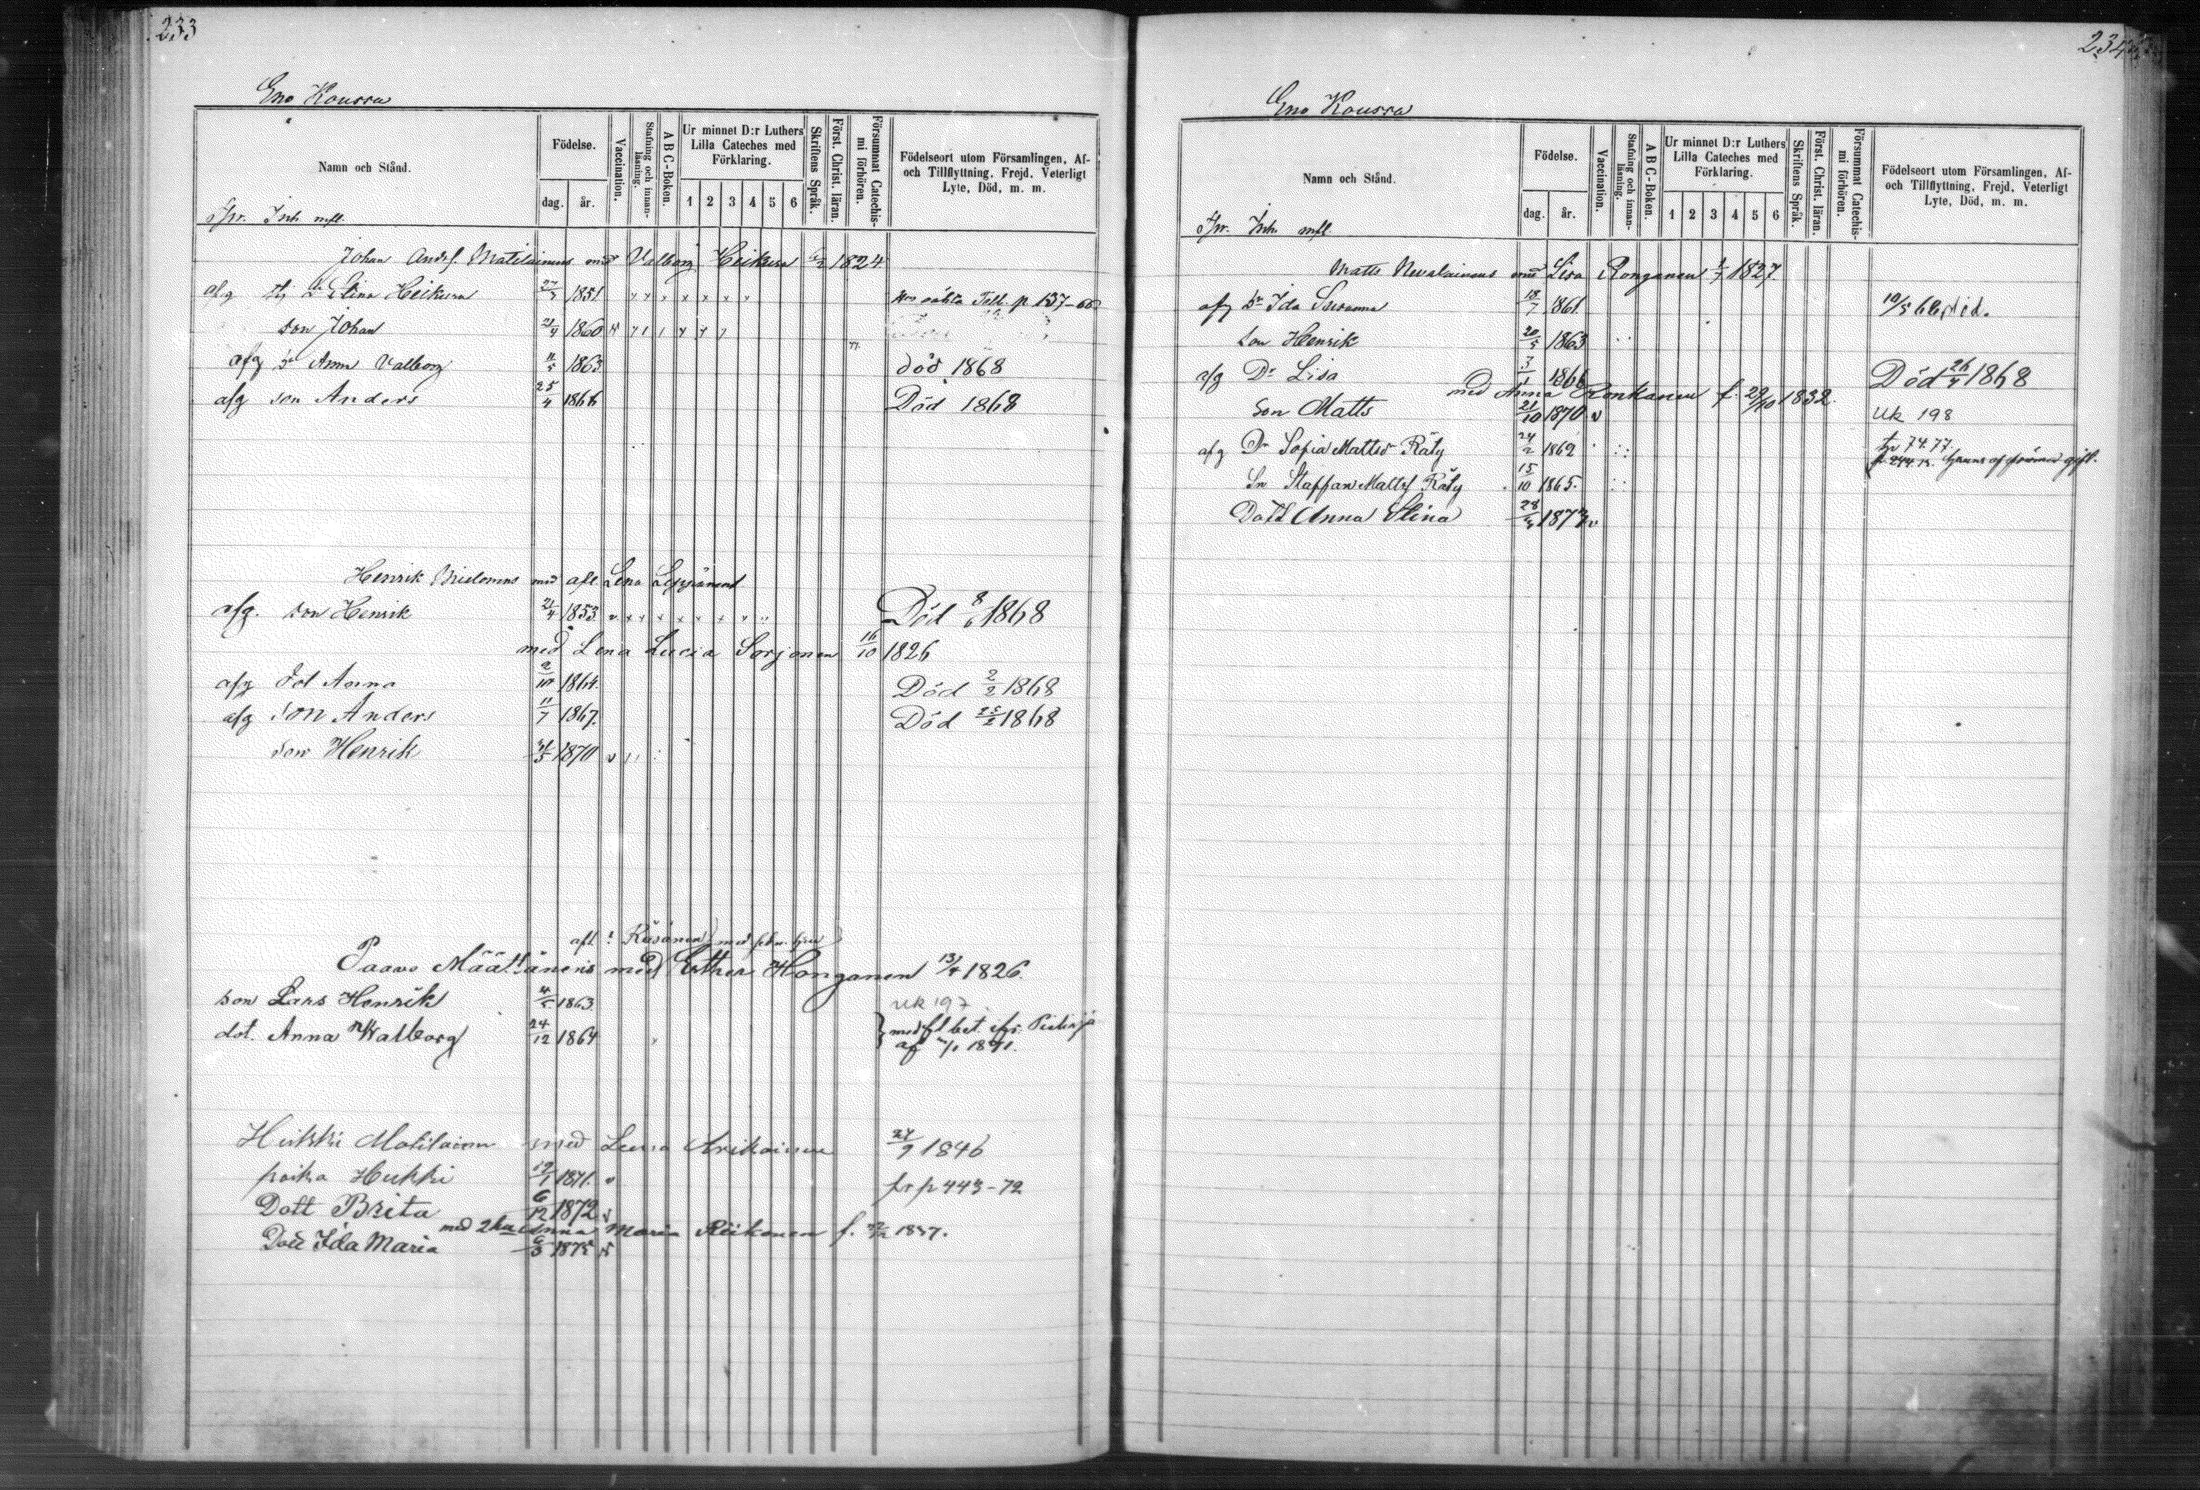 233
Eno Koussa
Namn och Stånd.
Födelse.
dag. år.
Vaccination.
Stafning och innanläsning.
A B C-Boken.
Ur minnet D:r Luthers Lilla Cateches med Förklaring.
1 2 3 4 5 6
Skriftens Språk.
Först. Christ. läran.
Försummat Catechismi förhören.
Födelseort utom Församlingen, Af- och Tillflyttning, Frejd, Veterligt Lyte, Död, m. m.
Inh. mfl.
Johan Matilainens med Valborg Heikura 1824
afg Stina Heikura 1851 p 137-66
son Johan 21/4 1860
afg Dr Anna Valborg 11/5 1863 död 1868
afg son Anders 25/4 1866 Död 1868
Henrik med afl Lena
afg. son Henrik 21/4 1853 Död 8/6 1868
med Lena Lucia Sorjonen 16/10 1826
afg Dot Anna 2/10 1864 Död 2/2 1868
afg son Anders 11/7 1867 Död 25/2 1868
son Henrik 1870
afl. Räsänen
Paavo Määttänens med Esther Honganen 13/4 1826
son Lars Henrik 4/5 1863 Uk 197
dot. Anna Walborg 24/12 1864 med fl bet.
af 1871.
Heikki Matilainen med Leena 27/9 1846
poika Heikki 19/1 1871 fr p 443-72
Dott Brita 6/12 1872
med 2dra Anna Maria f. 1837.
Dott Ida Maria 6/3 1875
234
Eno Koussa
Namn och Stånd.
Födelse.
dag. år.
Vaccination.
Stafning och innanläsning.
A B C-Boken.
Ur minnet D:r Luthers Lilla Cateches med Förklaring.
1 2 3 4 5 6
Skriftens Språk.
Först. Christ. läran.
Försummat Catechismi förhören.
Födelseort utom Församlingen, Af- och Tillflyttning, Frejd, Veterligt Lyte, Död, m. m.
Inh. mfl
Matts Nevalainens med Lisa Ronganen 1/7 1827
afg Dr Ida Susanna 18/7 1861 19/5 68 död.
son Henrik 20/5 1863
afg Dr Lisa 1866 Död 26/4 1868
med Anna Ronkanen f. 29/10 1832.
Son Matts 21/10 1870 Uk 198
afg Dr Sofia Mattsd Räty 24/2 1862 74.77.
Sn Staffan Mattss Räty 15/10 1865
Dott Anna Stina 28/3 1873